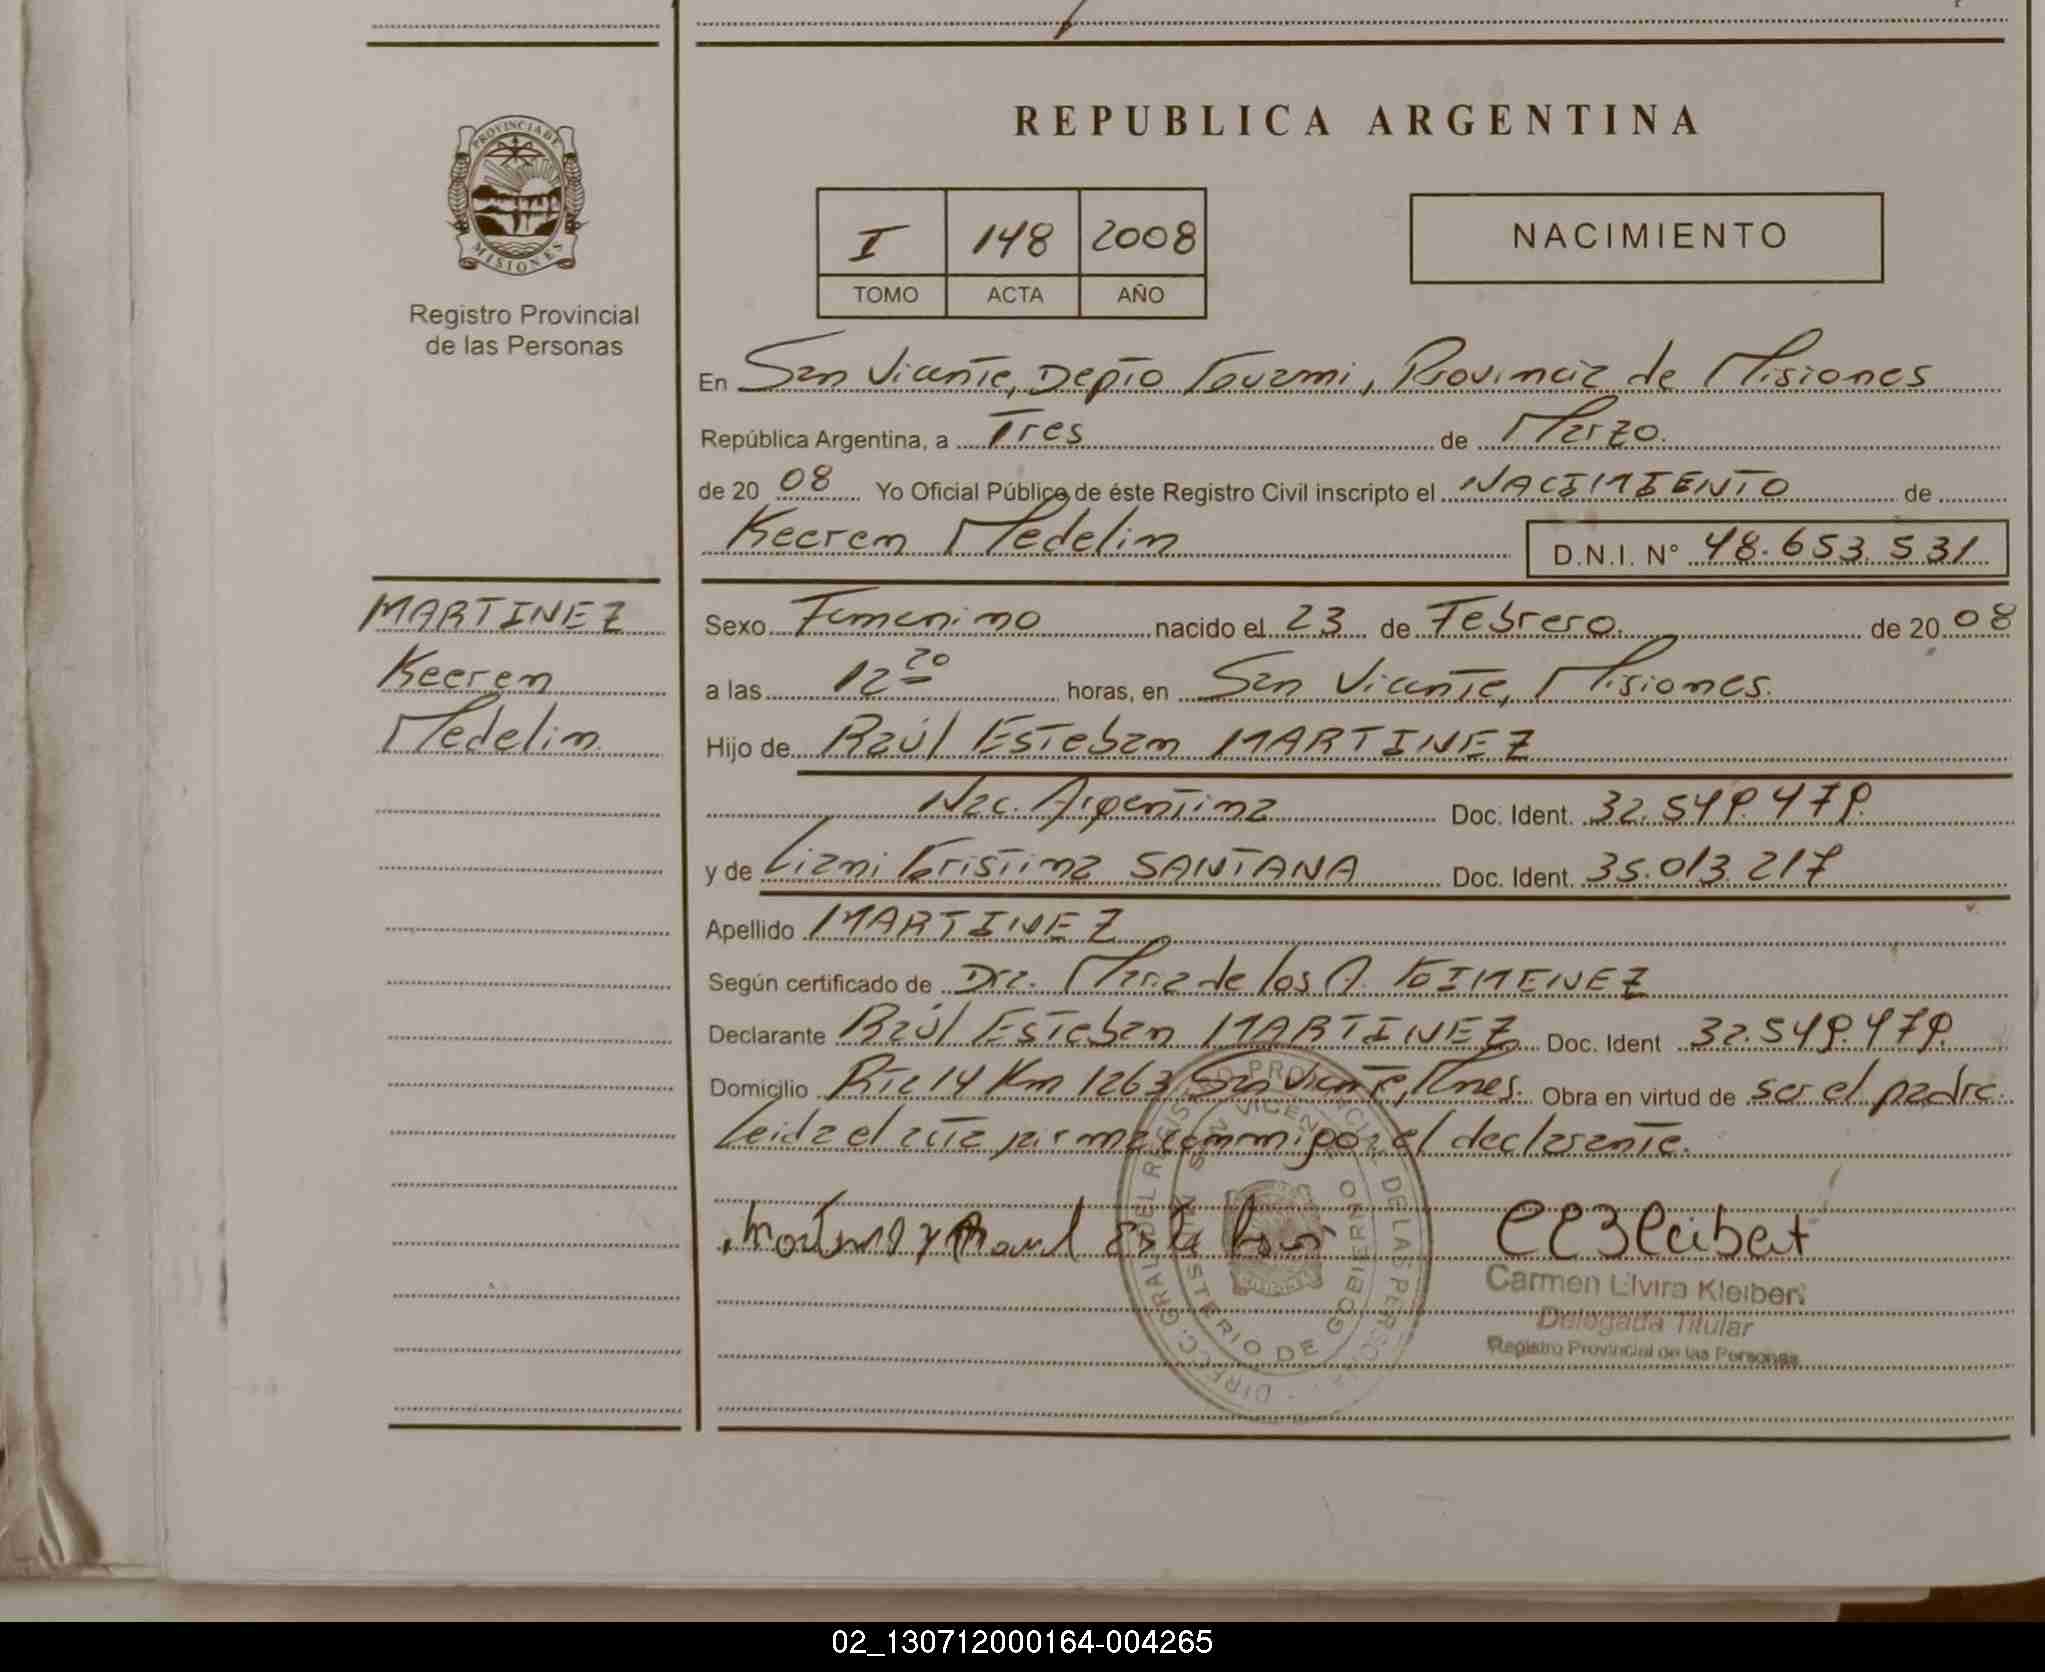 REPUBLICA ARGENTINA
PROVINCIA DE
MISIONES
Registro Provincial
de las Personas
I 148 2008
TOMO ACTA AÑO
NACIMIENTO
En San Vicente, Depto Guarani, Provincia de Misiones
República Argentina, a Tres de Marzo.
de 2008 Yo Oficial Público de éste Registro Civil inscripto el NACIMIENTO de
Keeren Medelin D.N.I. N° 48.653.531
MARTINEZ
Keeren
Medelin
Sexo Femenino nacido el 23 de Febrero. de 2008
a las 12 20 horas, en San Vicente, Misiones.
Hijo de Raúl Esteban MARTINEZ
Nac. Argentina Doc. Ident. 32.549.479.
y de Liani Cristina SANTANA Doc. Ident. 35.013.217
Apellido MARTINEZ
Según certificado de Dra. Maria de los A. GIMENEZ
Declarante Raúl Esteban MARTINEZ Doc. Ident 32.549.479.
Domicilio Rta 14 Km 1263 San Vicente, Mnes. Obra en virtud de ser el padre.
Leida el acta firma conmigo el declarante.
Martinez Raul Esteban
Carmen Elvira Kleibert
Delegada Titular
Registro Provincial de las Personas
DIRECC. GRAL. DEL REGISTRO PROVINCIAL DE LAS PERSONAS
SAN VICENTE
MINISTERIO DE GOBIERNO
02_130712000164-004265